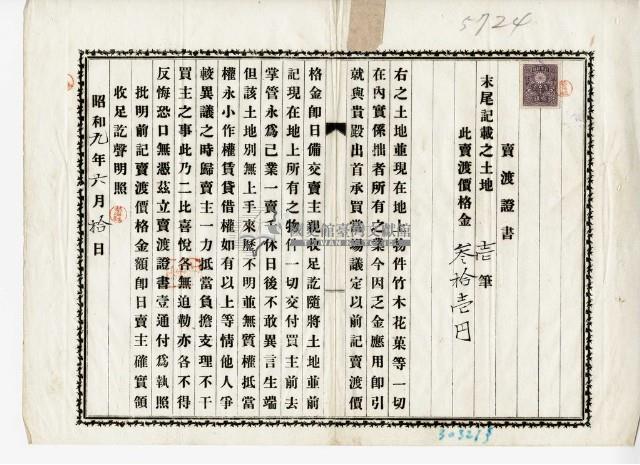 5724
賣渡證書
末尾記載之土地 壱筆
此賣渡價格金 叁拾壱円
右之土地並現在地上物件竹木花菓等一切
在內實係拙者所有之業今因乏金應用卽引
就與貴殿出首承買當場議定以前記賣渡價
格金卽日備交賣主親收足訖隨將土地並前
記現在地上所有之物件一切交付買主前去
掌管永爲己業一賣千休日後不敢異言生端
但該土地別無上手來歷不明並無質權抵當
權永小作權賃貸借權如有以上等情他人爭
較異議之時歸賣主一力抵當負擔支理不干
買主之事此乃二比喜悅各無迫勒亦各不得
反悔恐口無憑茲立賣渡證書壹通付爲執照
批明前記賣渡價格金額卽日賣主確實領
收足訖聲明照
昭和九年六月拾日